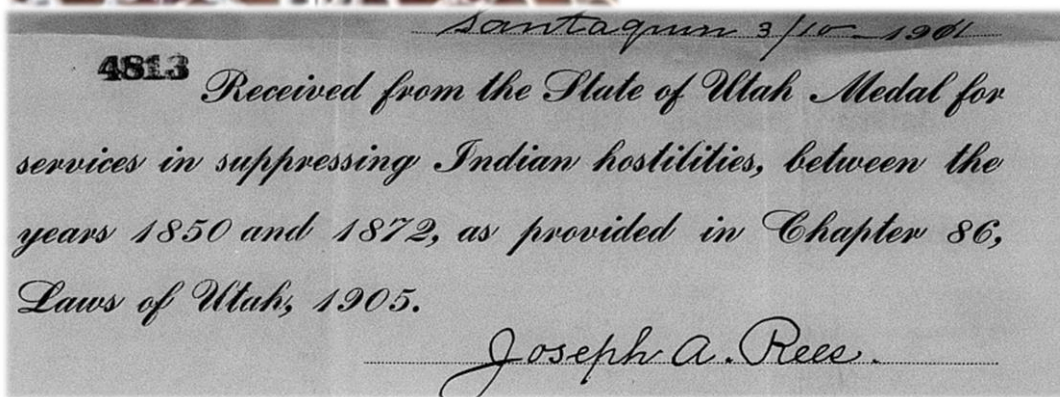 Santaquin 3/10 - 1901
4813 Received from the State of Utah Medal for
services in suppressing Indian hostilities, between the
years 1850 and 1872, as provided in Chapter 86,
Laws of Utah, 1905.
Joseph A. Rees.